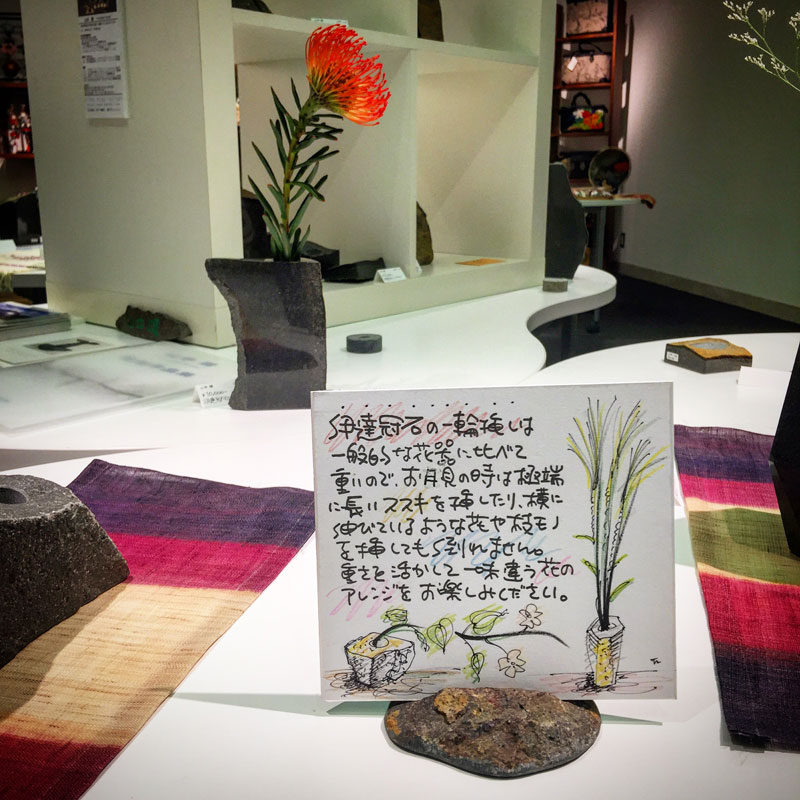 伊達冠石の一輪挿しは
一般的な花器に比べて
重いので、お月見の時は極端
に長いススキを挿したり、横に
伸びているような花や枝モノ
を挿しても倒れません。
重さを活かして一味違う花の
アレンジをお楽しみください。